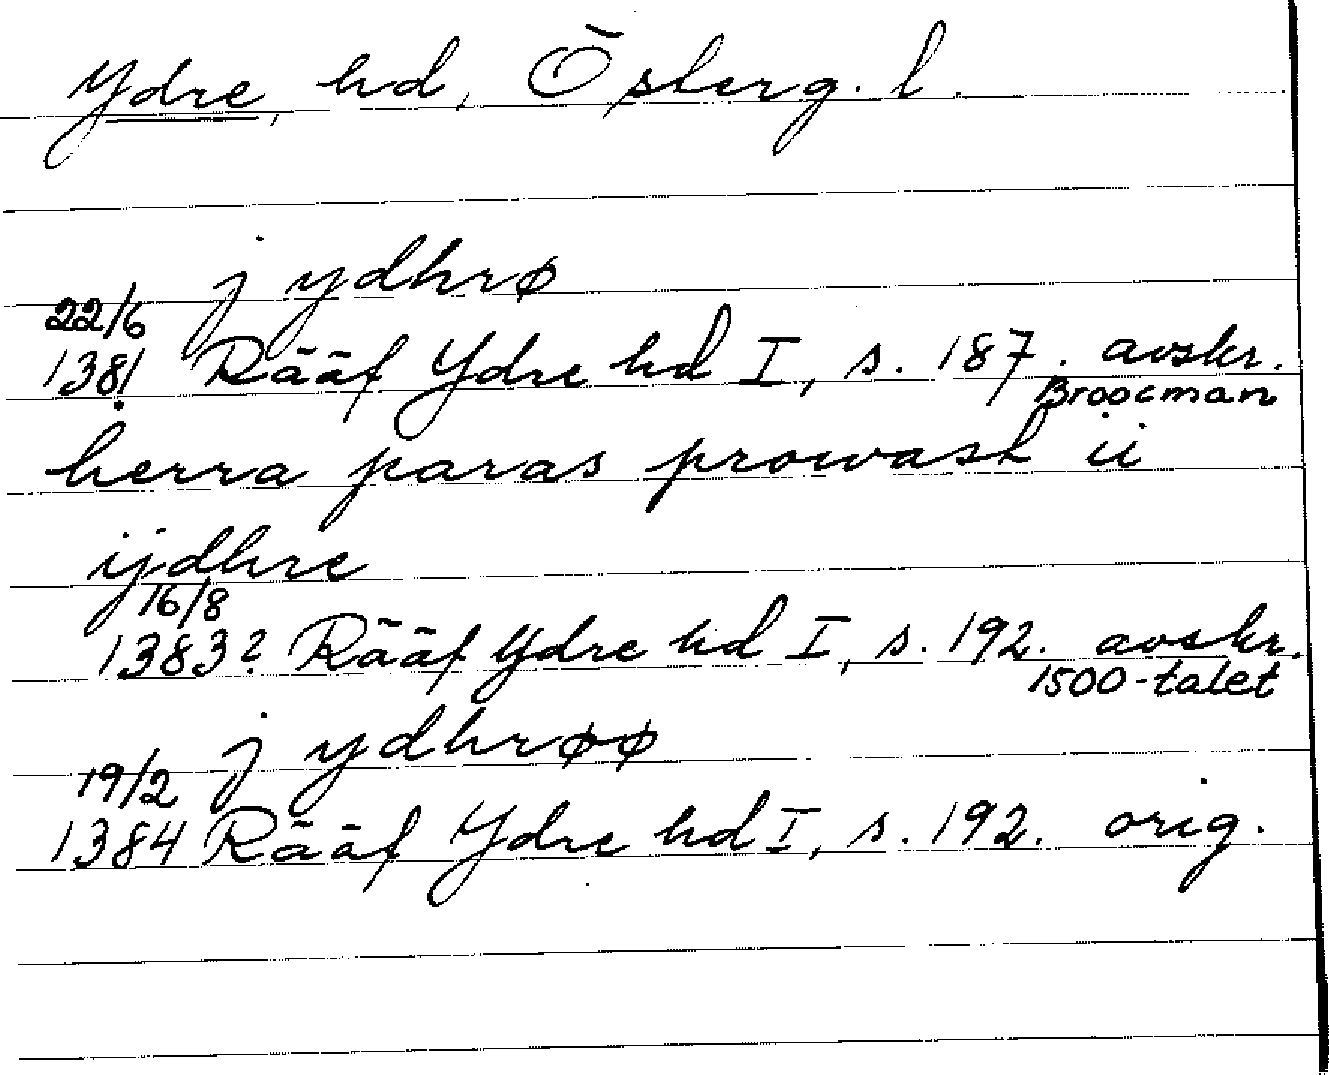 Ydre, hd, Österg. l.
j ydhrø
22/6
1381 Rääf Ydre hd I, s. 187. avskr.
Broocman
herra paras prowast ii
ijdhre
16/8
1383? Rääf Ydre hd I, s. 192. avskr.
1500-talet
j ydhrøø
19/2
1384 Rääf Ydre hd I, s. 192. orig.